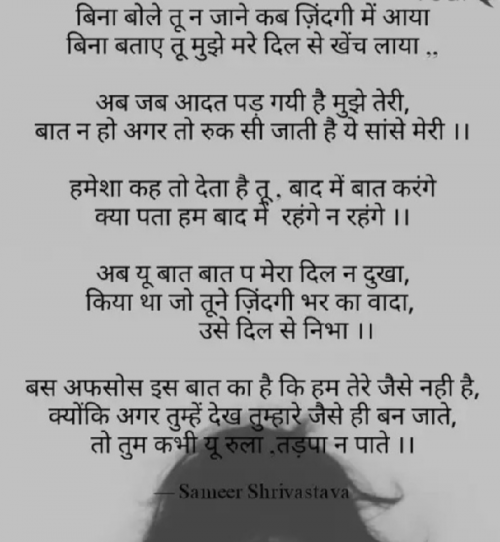 बिना बोले तू न जाने कब ज़िंदगी में आया
बिना बताए तू मुझे मरे दिल से खेंच लाया ,,
अब जब आदत पड़ गयी है मुझे तेरी,
बात न हो अगर तो रुक सी जाती है ये सांसे मेरी ।।
हमेशा कह तो देता है तू , बाद में बात करंगे
क्या पता हम बाद में रहंगे न रहंगे ।।
अब यू बात बात प मेरा दिल न दुखा,
किया था जो तूने ज़िंदगी भर का वादा,
उसे दिल से निभा ।।
बस अफसोस इस बात का है कि हम तेरे जैसे नही है,
क्योंकि अगर तुम्हें देख तुम्हारे जैसे ही बन जाते,
तो तुम कभी यू रुला ,तड़पा न पाते ।।
— Sameer Shrivastava